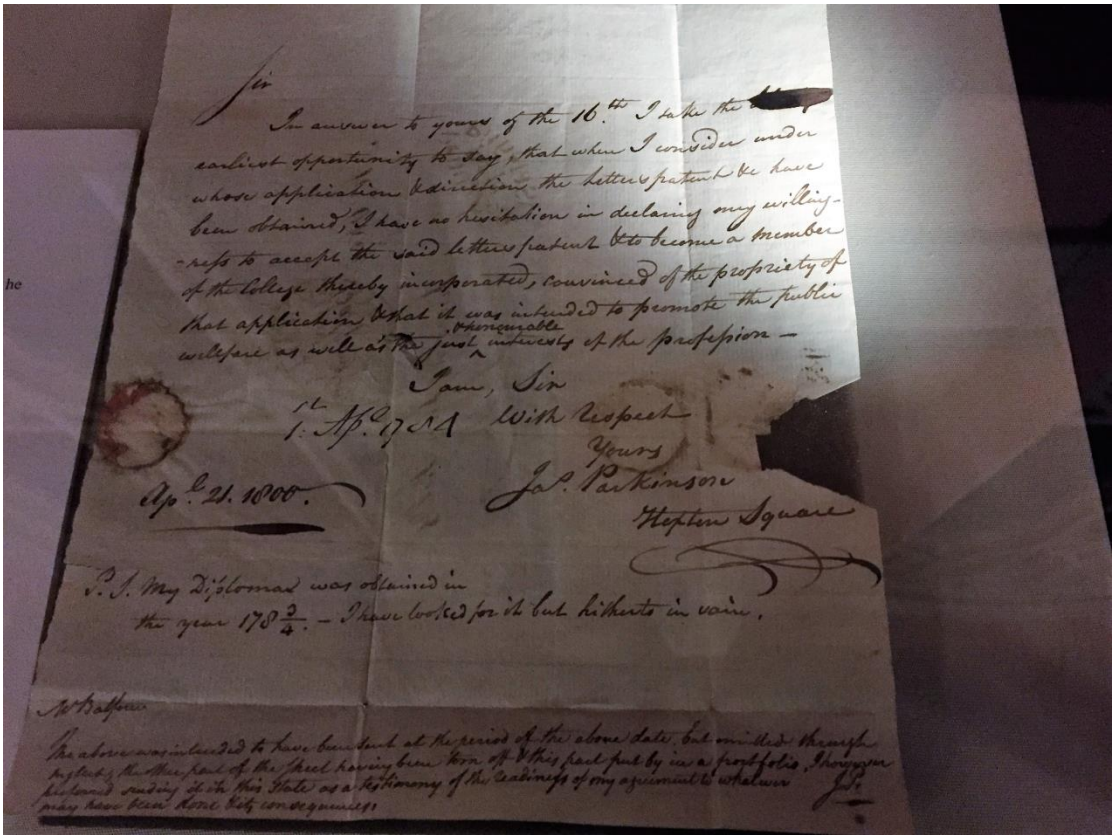 he
Sir
In answer to yours of the 16.th I take the
earliest opportunity to say, that when I consider under
whose application & direction the letters patent &c have
been obtained, I have no hesitation in declaring my willing-
-ness to accept the said letters patent & to become a member
of the College thereby incorporated, convinced of the propriety of
that application & that it was intended to promote the public
& honourable
welfare as well as the just ^ interests of the profession —
I am, Sir
1st Apl. 1784 With respect
Yours
Apl. 21. 1800. Jas. Parkinson
Hoxton Square
P.S. My Diploma was obtained in
the year 178 3/4. — I have looked for it but hitherto in vain.
Mr Balfour
The above was intended to have been sent at the period of the above date, but omitted through
neglect, the other part of the sheet having been torn off & this part put by in a portfolio, I however
preferred sending it in this state as a testimony of the readiness of my agreement to whatever
may have been done & its consequences. JP.